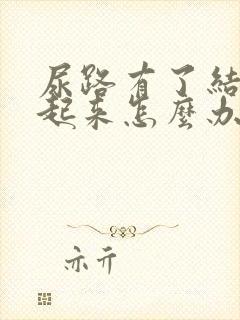 尿路有了結
起来怎麼办
亦亓